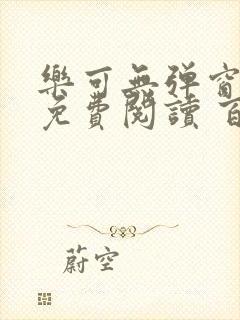 樂可無彈窗
免費閱讀 百
蔚空